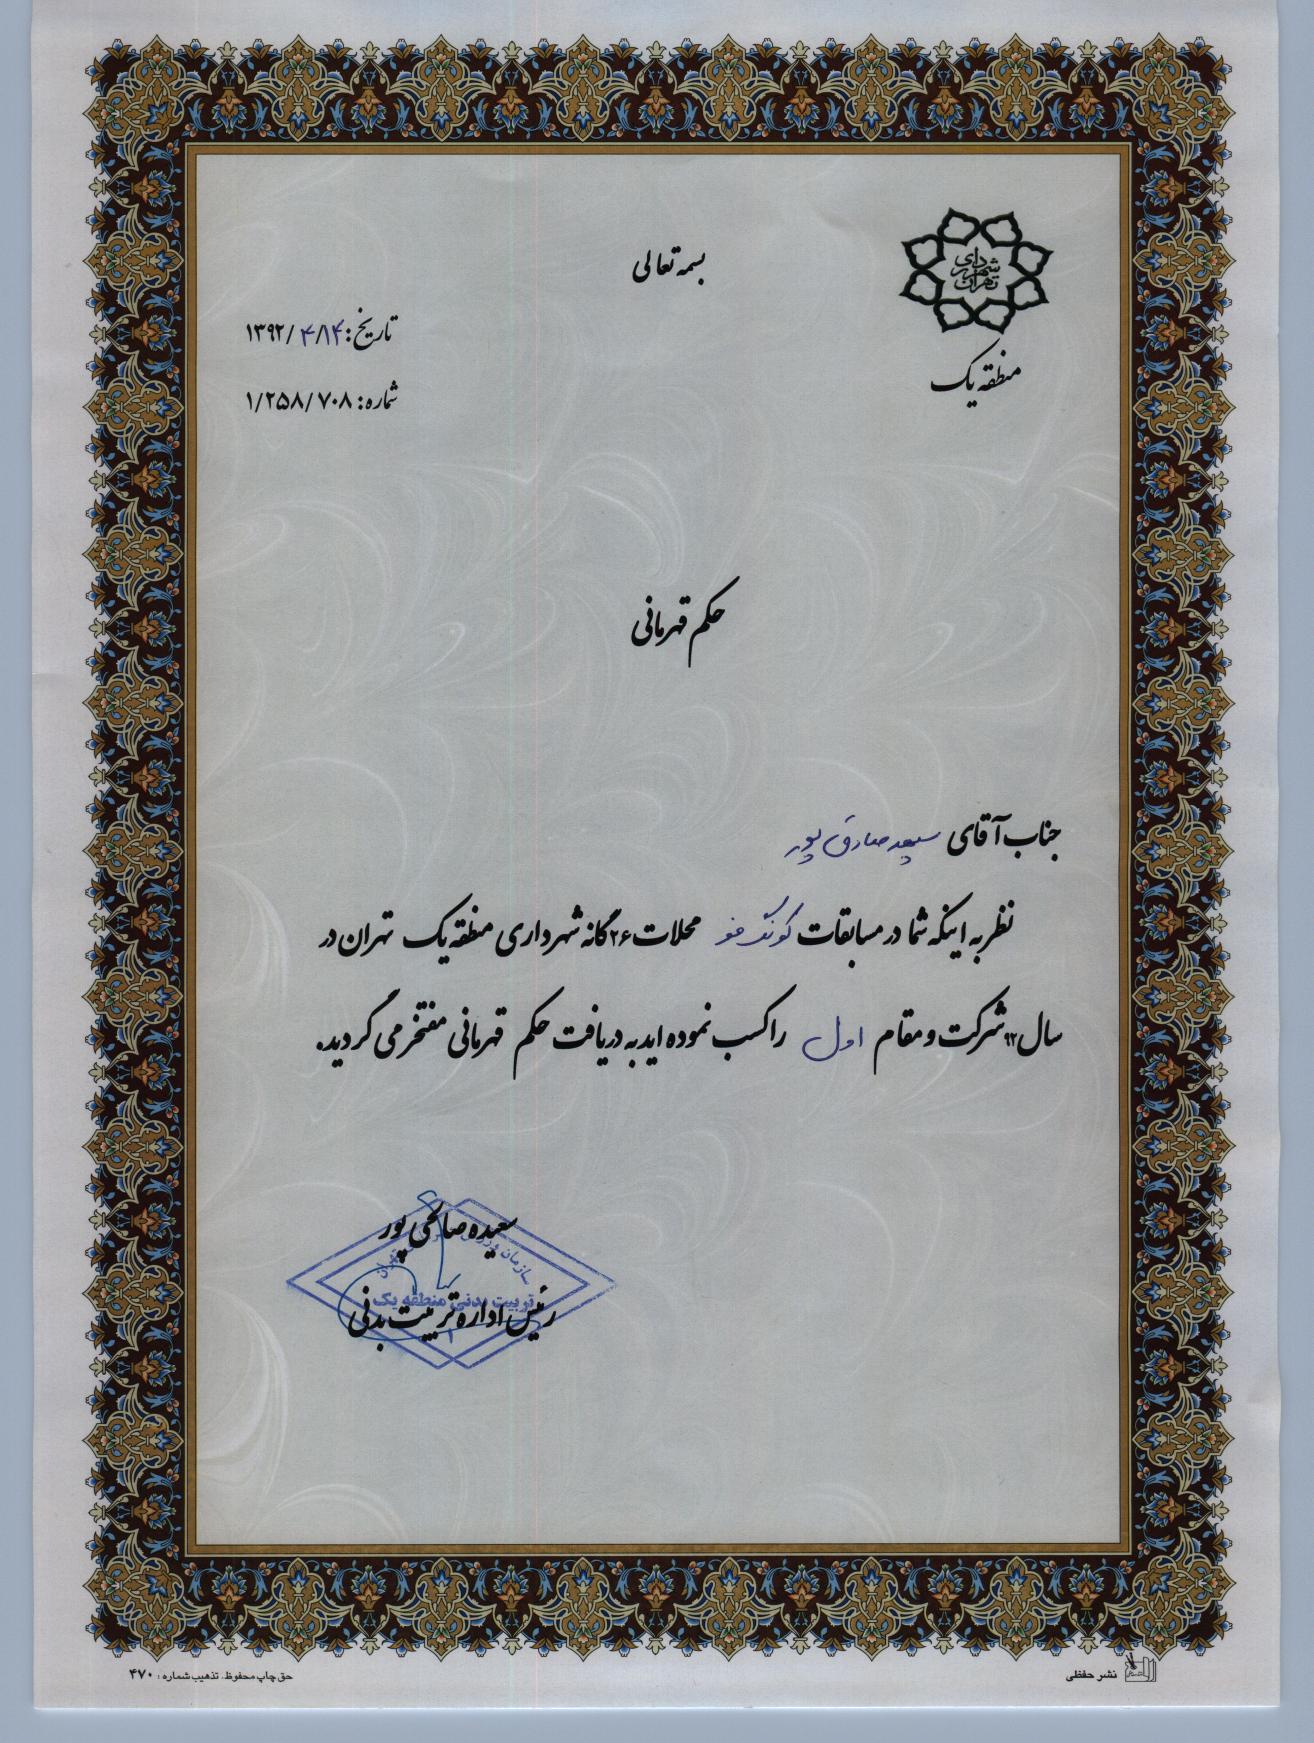 بسمه تعالی
شهرداری
تهران
منطقه یک
تاریخ: ۱۳۹۲/۴/۱۴
شماره: ۱/۲۵۸/۷۰۸
حکم قهرمانی
جناب آقای سعید صادق پور
نظر به اینکه شما در مسابقات کونگ فو محلات ۲۶ گانه شهرداری منطقه یک تهران در
سال ۹۲ شرکت و مقام اول را کسب نموده اید به دریافت حکم قهرمانی مفتخر می گردید.
سعیده صالحی پور
رئیس اداره تربیت بدنی
سازمان ورزش
تربیت بدنی منطقه یک
۱
نشر حفظی
حق چاپ محفوظ. تذهیب شماره : ۴۷۰